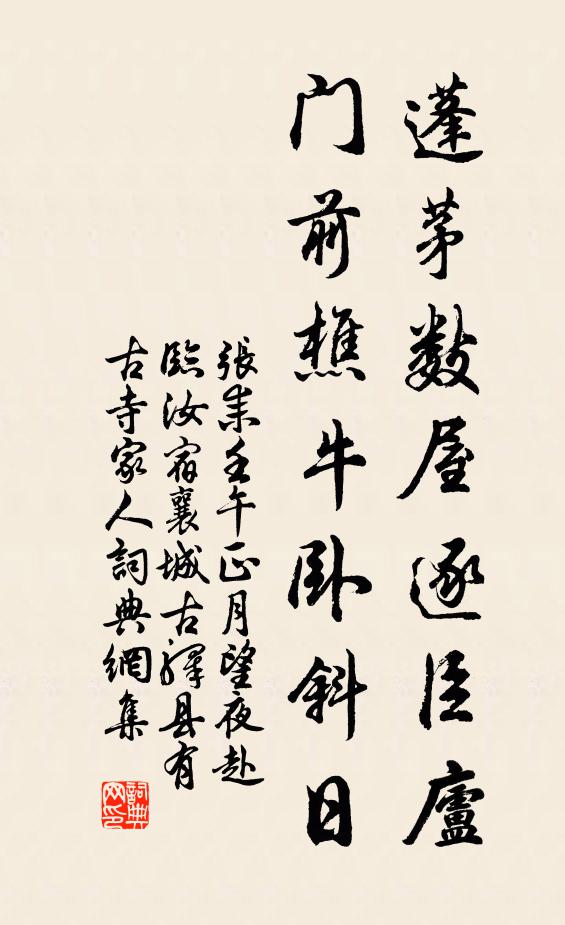 蓬茅數屋逐臣廬
門前樵牛卧斜日
張耒壬午正月望夜赴
臨汝宿襄城古驛县有
古寺家人詞典網集
詞典网印